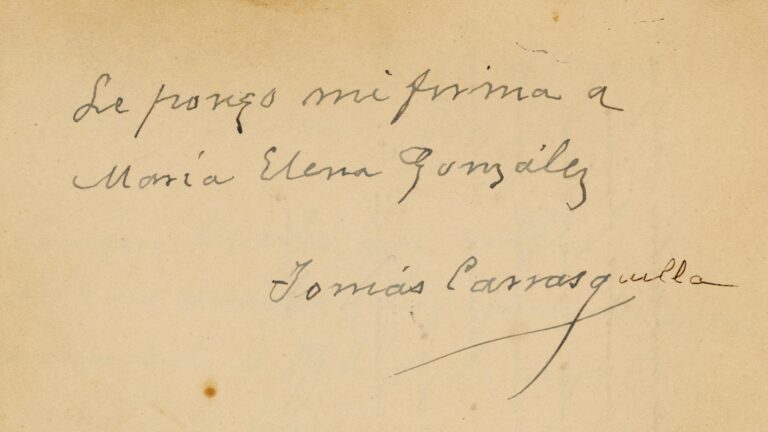 Le pongo mi firma a
María Elena González
Tomás Carrasquilla